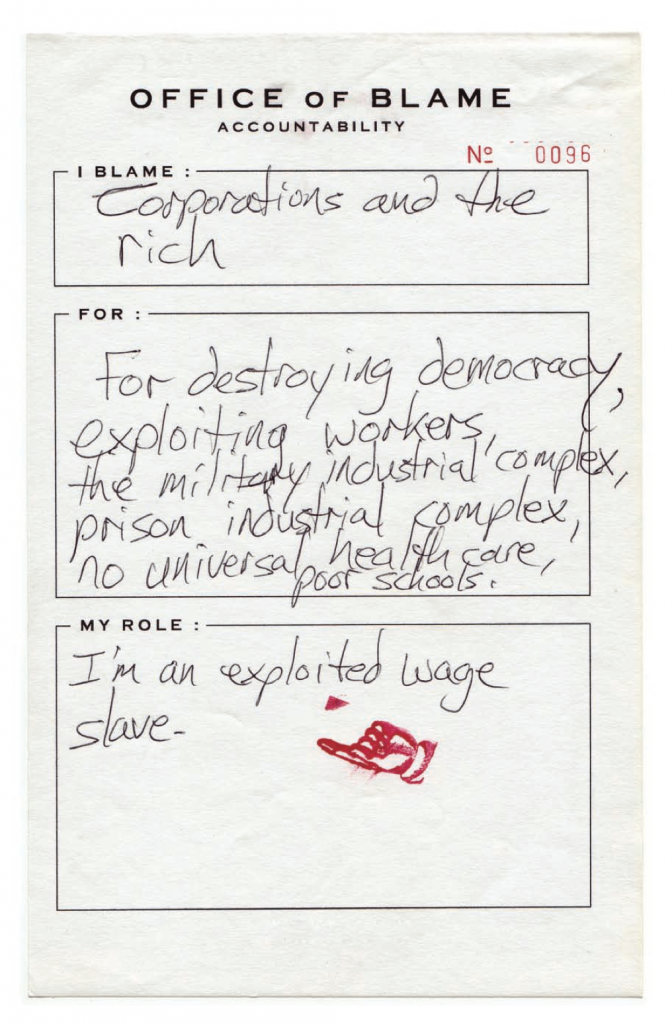 OFFICE OF BLAME
ACCOUNTABILITY
Nº 0096
I BLAME :
Corporations and the
rich
FOR :
For destroying democracy,
exploiting workers,
the military industrial complex,
prison industrial complex,
no universal health care,
poor schools.
MY ROLE :
I'm an exploited wage
slave-